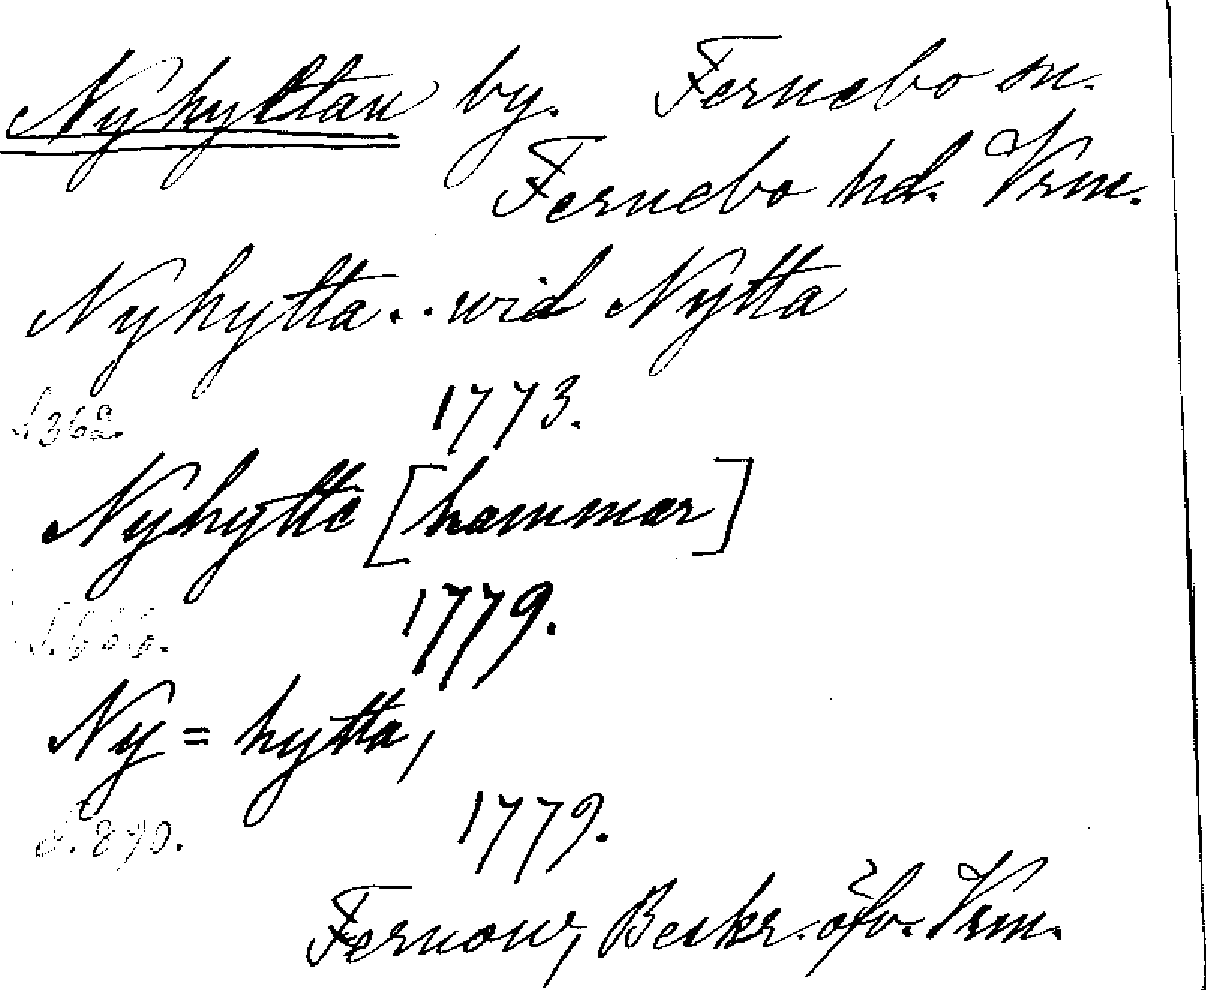 Nyhyttan by. Fernebo sn.
Fernebo hd. Vrm.
Nyhytta . . wid Nytta
S. 362. 1773.
Nyhytte [hammar]
1779.
Ny = hytta,
S. 890. 1779.
Fernow, Beskr. öfv. Vrm.